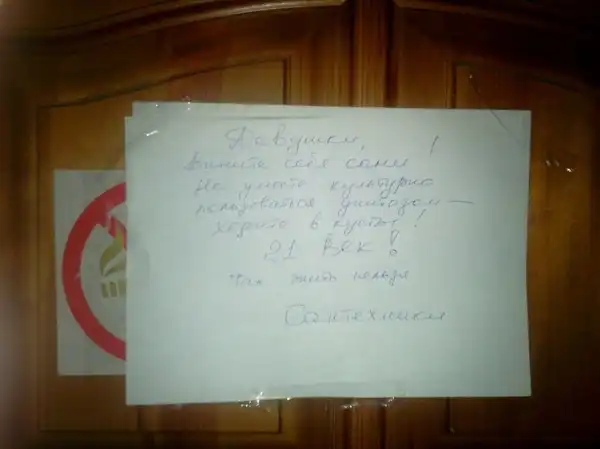 Девушки, !
Вините себя сами
Не умеете культурно
пользоваться унитазом —
ходите в кусты!
21 век!
Так жить нельзя
Сантехники